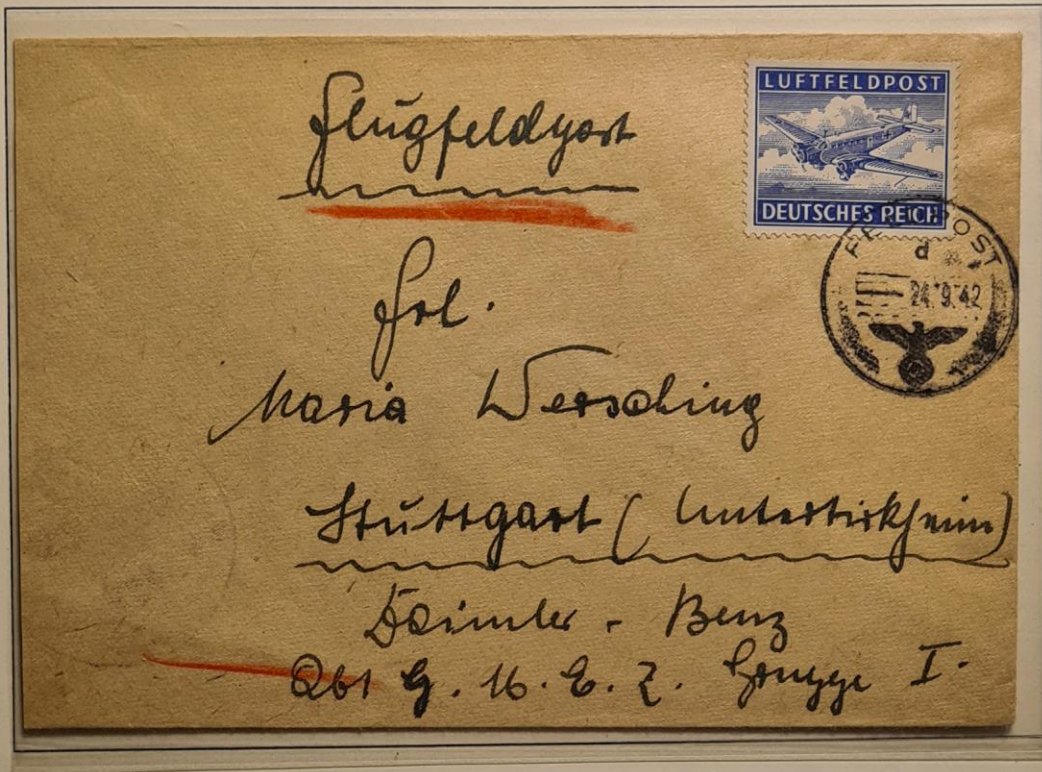 Flugfeldpost
LUFTFELDPOST
DEUTSCHES REICH
FELDPOST
d
24.9.42
Frl.
Maria Wersching
Stuttgart (Untertürkheim)
Daimler - Benz
Abt G. M. E. Z. Gruppe I.